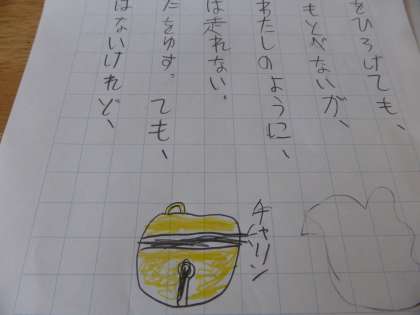 をひろげても、
もとべないが、
わたしのように、
は走れない。
だをゆす。ても、
はないけれど、
チャリン